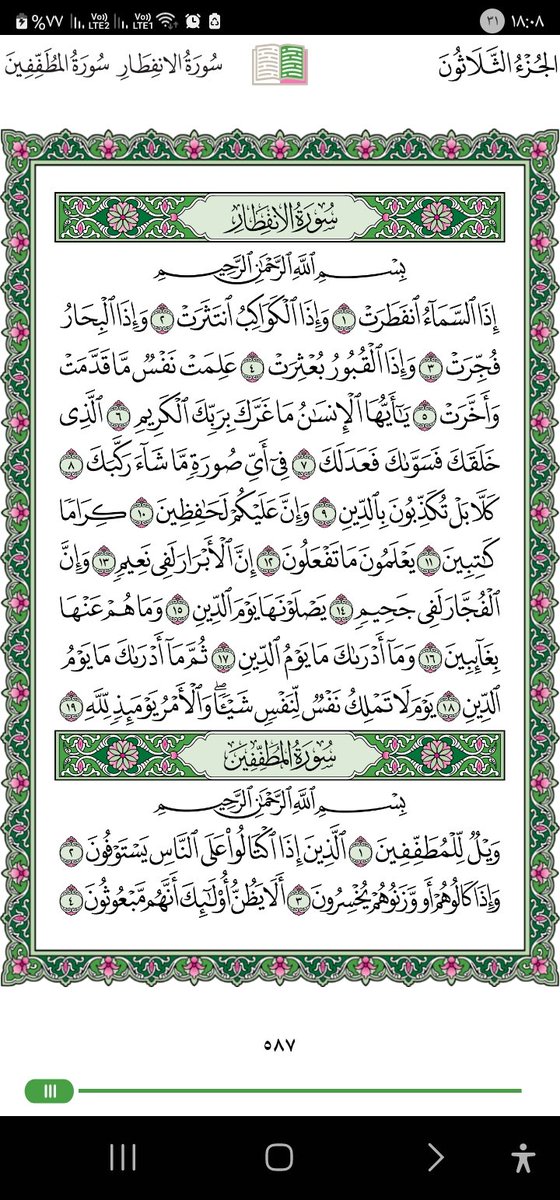 ١٨:٠٨ ٣١ Vo)) LTE1 Vo)) LTE2 %٧٧
الجُزْءُ الثَّلَاثُونَ سُورَةُ الانفِطَارِ سُورَةُ المُطَفِّفِينَ
سُورَةُ الانفِطَارِ
بِسْمِ ٱللَّهِ ٱلرَّحْمَٰنِ ٱلرَّحِيمِ
إِذَا ٱلسَّمَآءُ ٱنفَطَرَتْ ١ وَإِذَا ٱلْكَوَاكِبُ ٱنتَثَرَتْ ٢ وَإِذَا ٱلْبِحَارُ
فُجِّرَتْ ٣ وَإِذَا ٱلْقُبُورُ بُعْثِرَتْ ٤ عَلِمَتْ نَفْسٌ مَّا قَدَّمَتْ
وَأَخَّرَتْ ٥ يَٰٓأَيُّهَا ٱلْإِنسَٰنُ مَا غَرَّكَ بِرَبِّكَ ٱلْكَرِيمِ ٦ ٱلَّذِى
خَلَقَكَ فَسَوَّىٰكَ فَعَدَلَكَ ٧ فِىٓ أَىِّ صُورَةٍ مَّا شَآءَ رَكَّبَكَ ٨
كَلَّا بَلْ تُكَذِّبُونَ بِٱلدِّينِ ٩ وَإِنَّ عَلَيْكُمْ لَحَٰفِظِينَ ١٠ كِرَامًا
كَٰتِبِينَ ١١ يَعْلَمُونَ مَا تَفْعَلُونَ ١٢ إِنَّ ٱلْأَبْرَارَ لَفِى نَعِيمٍ ١٣ وَإِنَّ
ٱلْفُجَّارَ لَفِى جَحِيمٍ ١٤ يَصْلَوْنَهَا يَوْمَ ٱلدِّينِ ١٥ وَمَا هُمْ عَنْهَا
بِغَآئِبِينَ ١٦ وَمَآ أَدْرَىٰكَ مَا يَوْمُ ٱلدِّينِ ١٧ ثُمَّ مَآ أَدْرَىٰكَ مَا يَوْمُ
ٱلدِّينِ ١٨ يَوْمَ لَا تَمْلِكُ نَفْسٌ لِّنَفْسٍ شَيْـًٔا ۖ وَٱلْأَمْرُ يَوْمَئِذٍ لِّلَّهِ ١٩
سُورَةُ المُطَفِّفِينَ
بِسْمِ ٱللَّهِ ٱلرَّحْمَٰنِ ٱلرَّحِيمِ
وَيْلٌ لِّلْمُطَفِّفِينَ ١ ٱلَّذِينَ إِذَا ٱكْتَالُوا۟ عَلَى ٱلنَّاسِ يَسْتَوْفُونَ ٢
وَإِذَا كَالُوهُمْ أَو وَّزَنُوهُمْ يُخْسِرُونَ ٣ أَلَا يَظُنُّ أُو۟لَٰٓئِكَ أَنَّهُم مَّبْعُوثُونَ ٤
٥٨٧